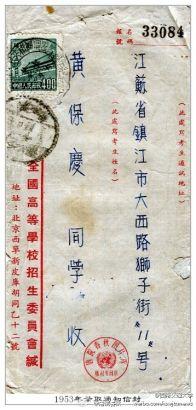 報名
號碼 33084
（此處寫考生通訊地址）
江蘇省鎮江市大西路獅子街"11"号
（此處寫考生姓名）
黃保慶同學收
中國人民郵政
400
全國高等學校招生委員會緘
地址：北京西單新皮庫胡同乙十二號
1953年录取通知信封